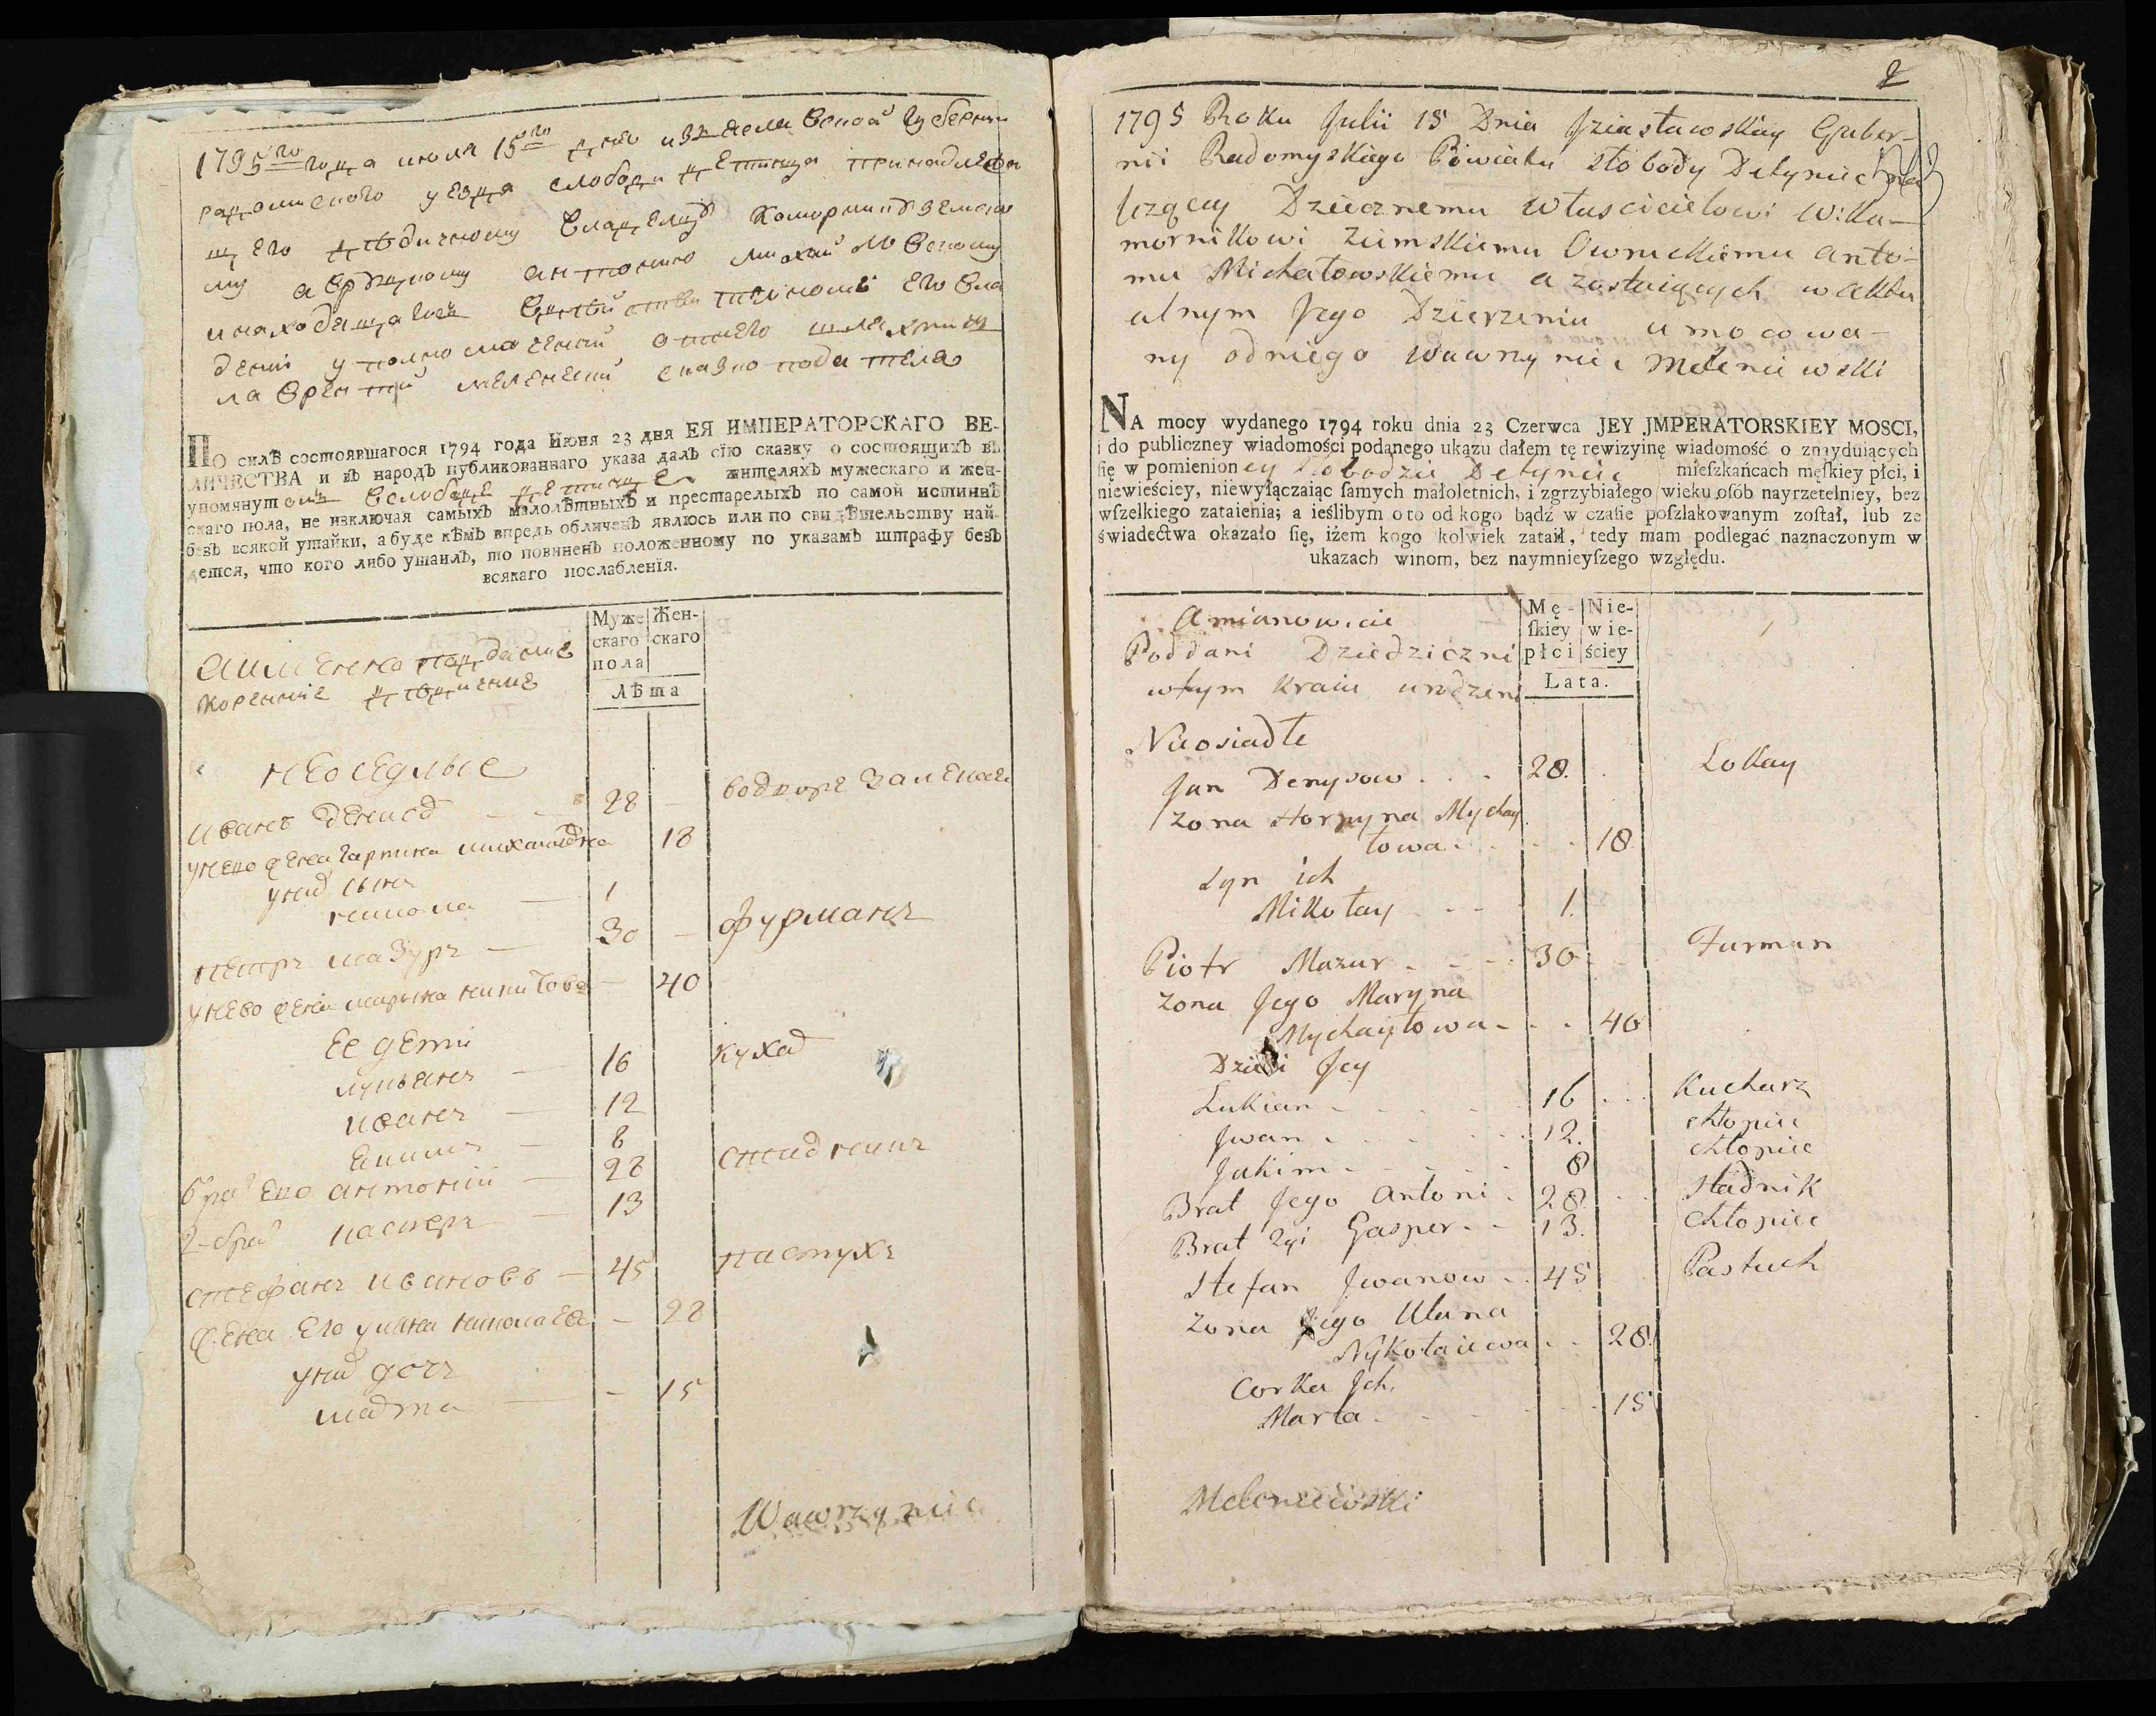 1795го года июля 15го дня изяславской губернии
радомиского уезда слободи детинца принадлежа
щего дѣдичному владелцу коморнику земско
му овруцкому антонию михайловскому
и находящагось в дѣйствителномъ его вла
дении уполномоченний отнего шляхтичъ
лаврентий меленевский сказкоподатель
По силѣ состоявшагося 1794 года Июня 23 дня ЕЯ ИМПЕРАТОРСКАГО ВЕ-
ЛИЧЕСТВА и въ народъ публикованнаго указа далъ сїю сказку о состоящихъ въ
упомянутомъ вслободе детинце жителяхъ мужескаго и жен-
скаго пола, не изключая самыхъ малолѣтныхъ и престарелыхъ по самой истиннѣ
безъ всякой утайки, а буде кѣмъ впредь обличенъ явлюсь или по свидѣтельству най-
дется, что кого либо утаилъ, то повиненъ положенному по указамъ штрафу безъ
всякаго послабленїя.
аименно поддание
коренние дѣдичние
Муже- Жен-
скаго скаго
пола
Лѣта
неоседлые
иванъ денисов 28 — водворе залокая
унего жена гарпина михайлова 18
уних сынъ
никола — 1
петръ мазуръ — 30 — фурманъ
унево жена марына никитова — 40
ее дети
лукьянъ — 16 кухар
иванъ — 12
екимъ — 8
брат ево антоний — 28 стадникъ
2-брат касперъ — 13
стефанъ ивановъ — 45 пастухъ
жена его уляна николаева — 28
уних дочъ
марта — - 15
Wawrzyniec
2
1795 Roku Julii 15 Dnia Jziasławskiey Guber-
nii Radomyskiego Powiatu Słobody Detyniec nale
żzącey Dziecznemu włascicielowi W: Ko-
mornikowi Ziemskiemu Owruckiemu Anto-
mu Michałowskiemu a zostaiących w aktu
alnym Jego Dzierzeniu umocowa-
ny od niego Wawrzyniec Meleniewski
NA mocy wydanego 1794 roku dnia 23 Czerwca JEY JMPERATORSKIEY MOSCI,
i do publiczney wiadomości podanego ukazu dałem tę rewizyinę wiadomość o znayduiących
ſię w pomienioney Słobodzie Detyniec mieſzkańcach męſkiey płci, i
niewieściey, niewyłączaiąc ſamych małoletnich, i zgrzybiałego wieku osób nayrzetelniey, bez
wſzelkiego zataienia; a ieślibym o to od kogo bądź w czaſie poſzlakowanym zoſtał, lub ze
świadectwa okazało ſię, iżem kogo kolwiek zataił, tedy mam podlegać naznaczonym w
ukazach winom, bez naymnieyſzego względu.
Amianowicie
Poddani Dziedziczni
wtym Kraiu urodzeni
Mę- Nie-
ſkiey wie-
płci ściey
Lata.
Nieosiadłe
Jan Denysow . . . 28. Lokay
Zona Horpyna Mychay
łowa . . . 18
Syn ich
Mikołay . - - 1.
Piotr Mazur . - - 30 Furman
Zona Jego Maryna
Mychayłowa - . . 40
Dzieci Jey
Łukian - . . . 16 Kucharz
Jwan . . . . 12. chłopiec
Jakim - . . . 8 chłopiec
Brat Jego Antoni . 28. Stadnik
Brat 2gi Gasper - - 13. Chłopiec
Stefan Jwanow - . 45 Pastuch
Zona Jego Ulana
Nykołaiewa . . 28.
Corka Jch.
Marta - . . . 15
Meleniewski